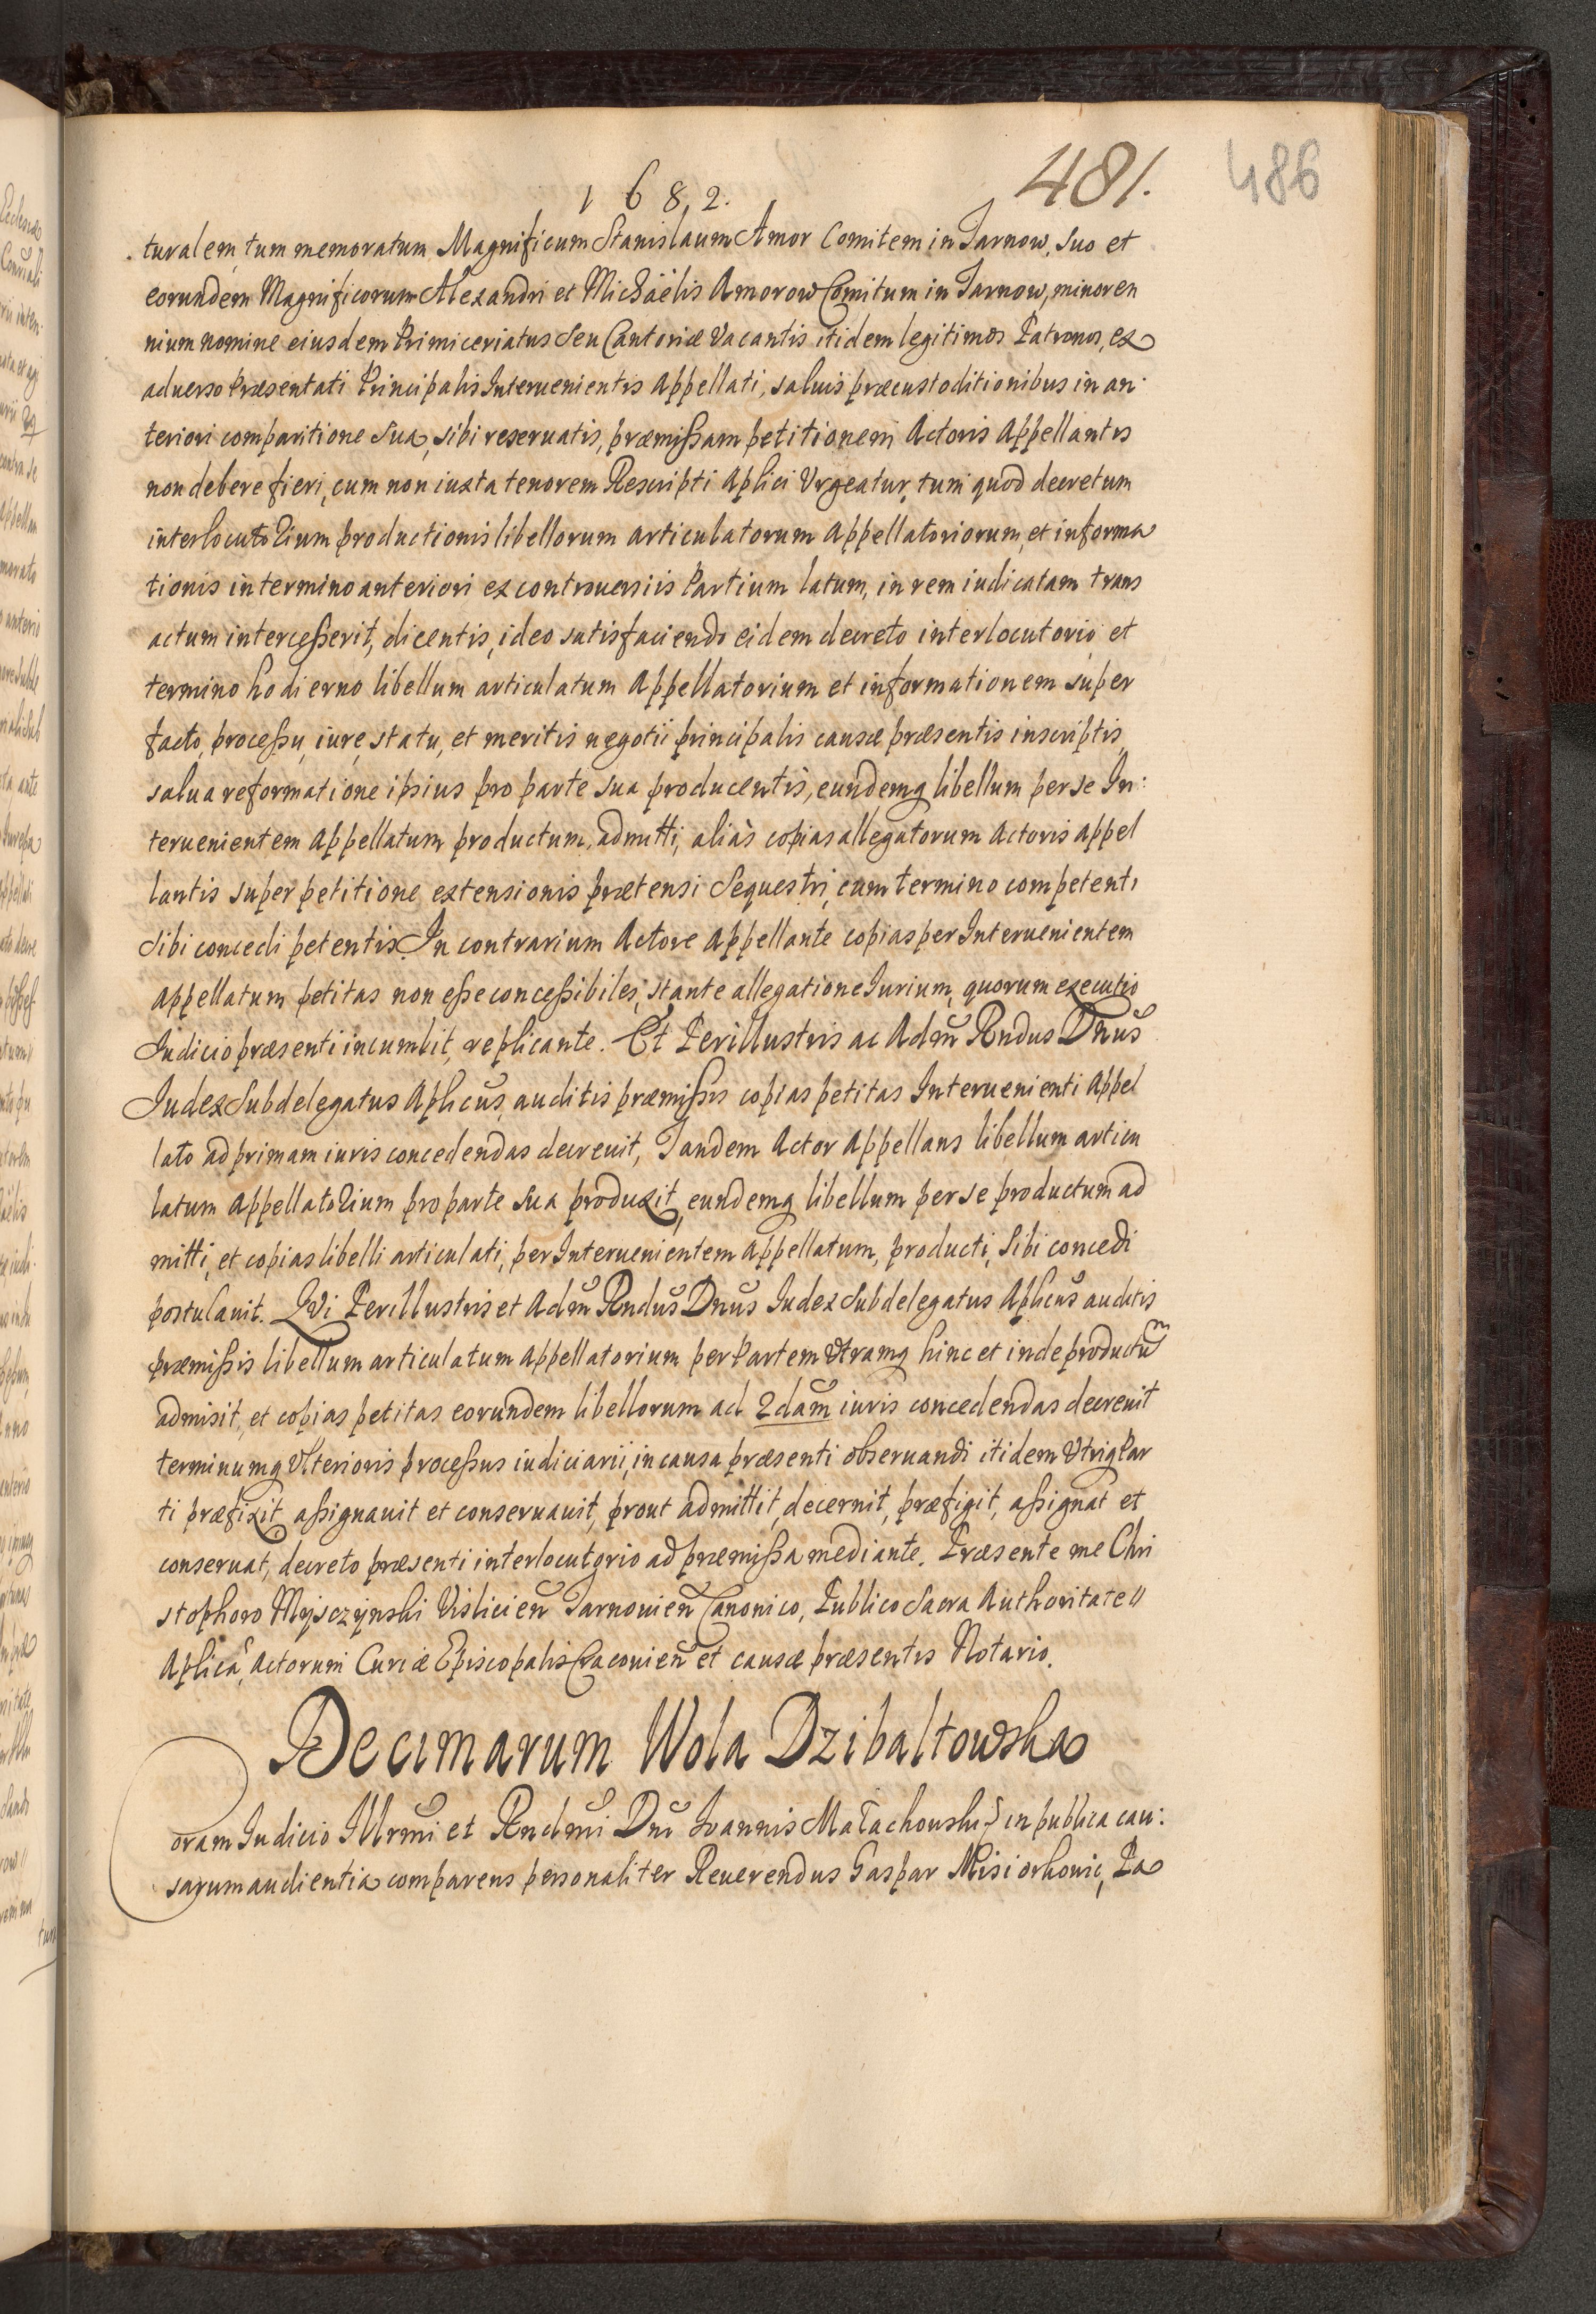 1682.
481.
486
turalem, tum memoratum Magnificum Stanislaum Amor Comitem in Tarnow, suo et
eorundem Magnificorum Alexandri et Michäelis Amorow Comitum in Tarnow, minoren
nium nomine eiusdem Primiceriatus seu Cantoriæ Vacantis itidem legitimos Patronos, ex
aduerso Præsentati Principalis Interuenientis Appellati, saluis præcustoditionibus in an:
teriori comparitione sua, sibi reseruatis, præmißam petitionem Actoris Appellantis
non debere fieri, cum non iuxta tenorem Rescripti Aplici Vrgeatur, tum quod decretum
interlocutorium productionis libellorum articulatorum Appellatoriorum, et informa
tionis in termino anteriori ex controuersiis Partium latum, in rem iudicatam trans
actum interceßerit, dicentis, ideo satisfaciendo eidem decreto interlocutorio et
termino hodierno libellum articulatum Appellatorium et informationem super
facto, proceßu, iure, statu, et meritis negotii principalis causæ præsentis inscriptis,
salua reformatione ipsius pro parte sua producentis, eundemq libellum per se In:
teruenientem Appellatum productum, admitti, aliàs copias allegatorum Actoris Appel
lantis super petitione extensionis prætensi Sequestri, cum termino competenti
sibi concedi petentis. In contrarium Actore Appellante copias per Interuenientem
Appellatum petitas non eße conceßibiles, stante allegatione Iurium, quorum executio
Iudicio præsenti incumbit, replicante. Et Perillustris ac Adm Rndus Dnus
Iudex Subdelegatus Aplicus, auditis præmißis copias petitas Interuenienti Appel
lato ad primam iuris concedendas decreuit, Tandem Actor Appellans libellum articu
latum Appellatorium pro parte sua produxit, eundemq libellum per se productum ad
mitti, et copias libelli articulati, per Interuenientem Appellatum, producti, sibi concedi
postulauit. Qui Perillustris et Adm Rndus Dnus Iudex Subdelegatus Aplicus auditis
præmißis libellum articulatum Appellatorium per Partem Vtramq hinc et inde productum
admisit, et copias petitas eorundem libellorum ad 2dam iuris concedendas decreuit
terminumq Vlterioris proceßus iudiciarii, in causa præsenti obseruandi itidem Vtriq Par
ti præfixit, aßignauit et conseruauit, prout admittit, decernit, præfigit, aßignat et
conseruat, decreto præsenti interlocutorio ad præmißa mediante. Præsente me Chri
stophoro Mysczynski Vislicien Tarnouien Canonico, Publico Sacra Authoritate
Aplica, Actorum Curiæ Episcopalis Cracouien et causæ præsentis Notario.
Decimarum Wola Dzibaltowska
Coram Iudicio Illrmi et Rndmi Dni Ioannis Małachowski in publica cau:
sarum audientia comparens personaliter Reuerendus Gaspar Misiorkowic, Pa